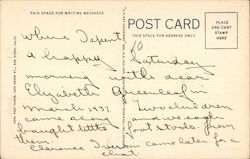 THIS SPACE FOR WRITING MESSAGES
POST CARD
THIS SPACE FOR ADDRESS ONLY
PLACE
ONE CENT
STAMP
HERE
where I spent
a happy Saturday
morning with dear
Elizabeth
March 1937. Two children
came along and we each
bought little foot stools from
them.
Clarence came later for a
chat.